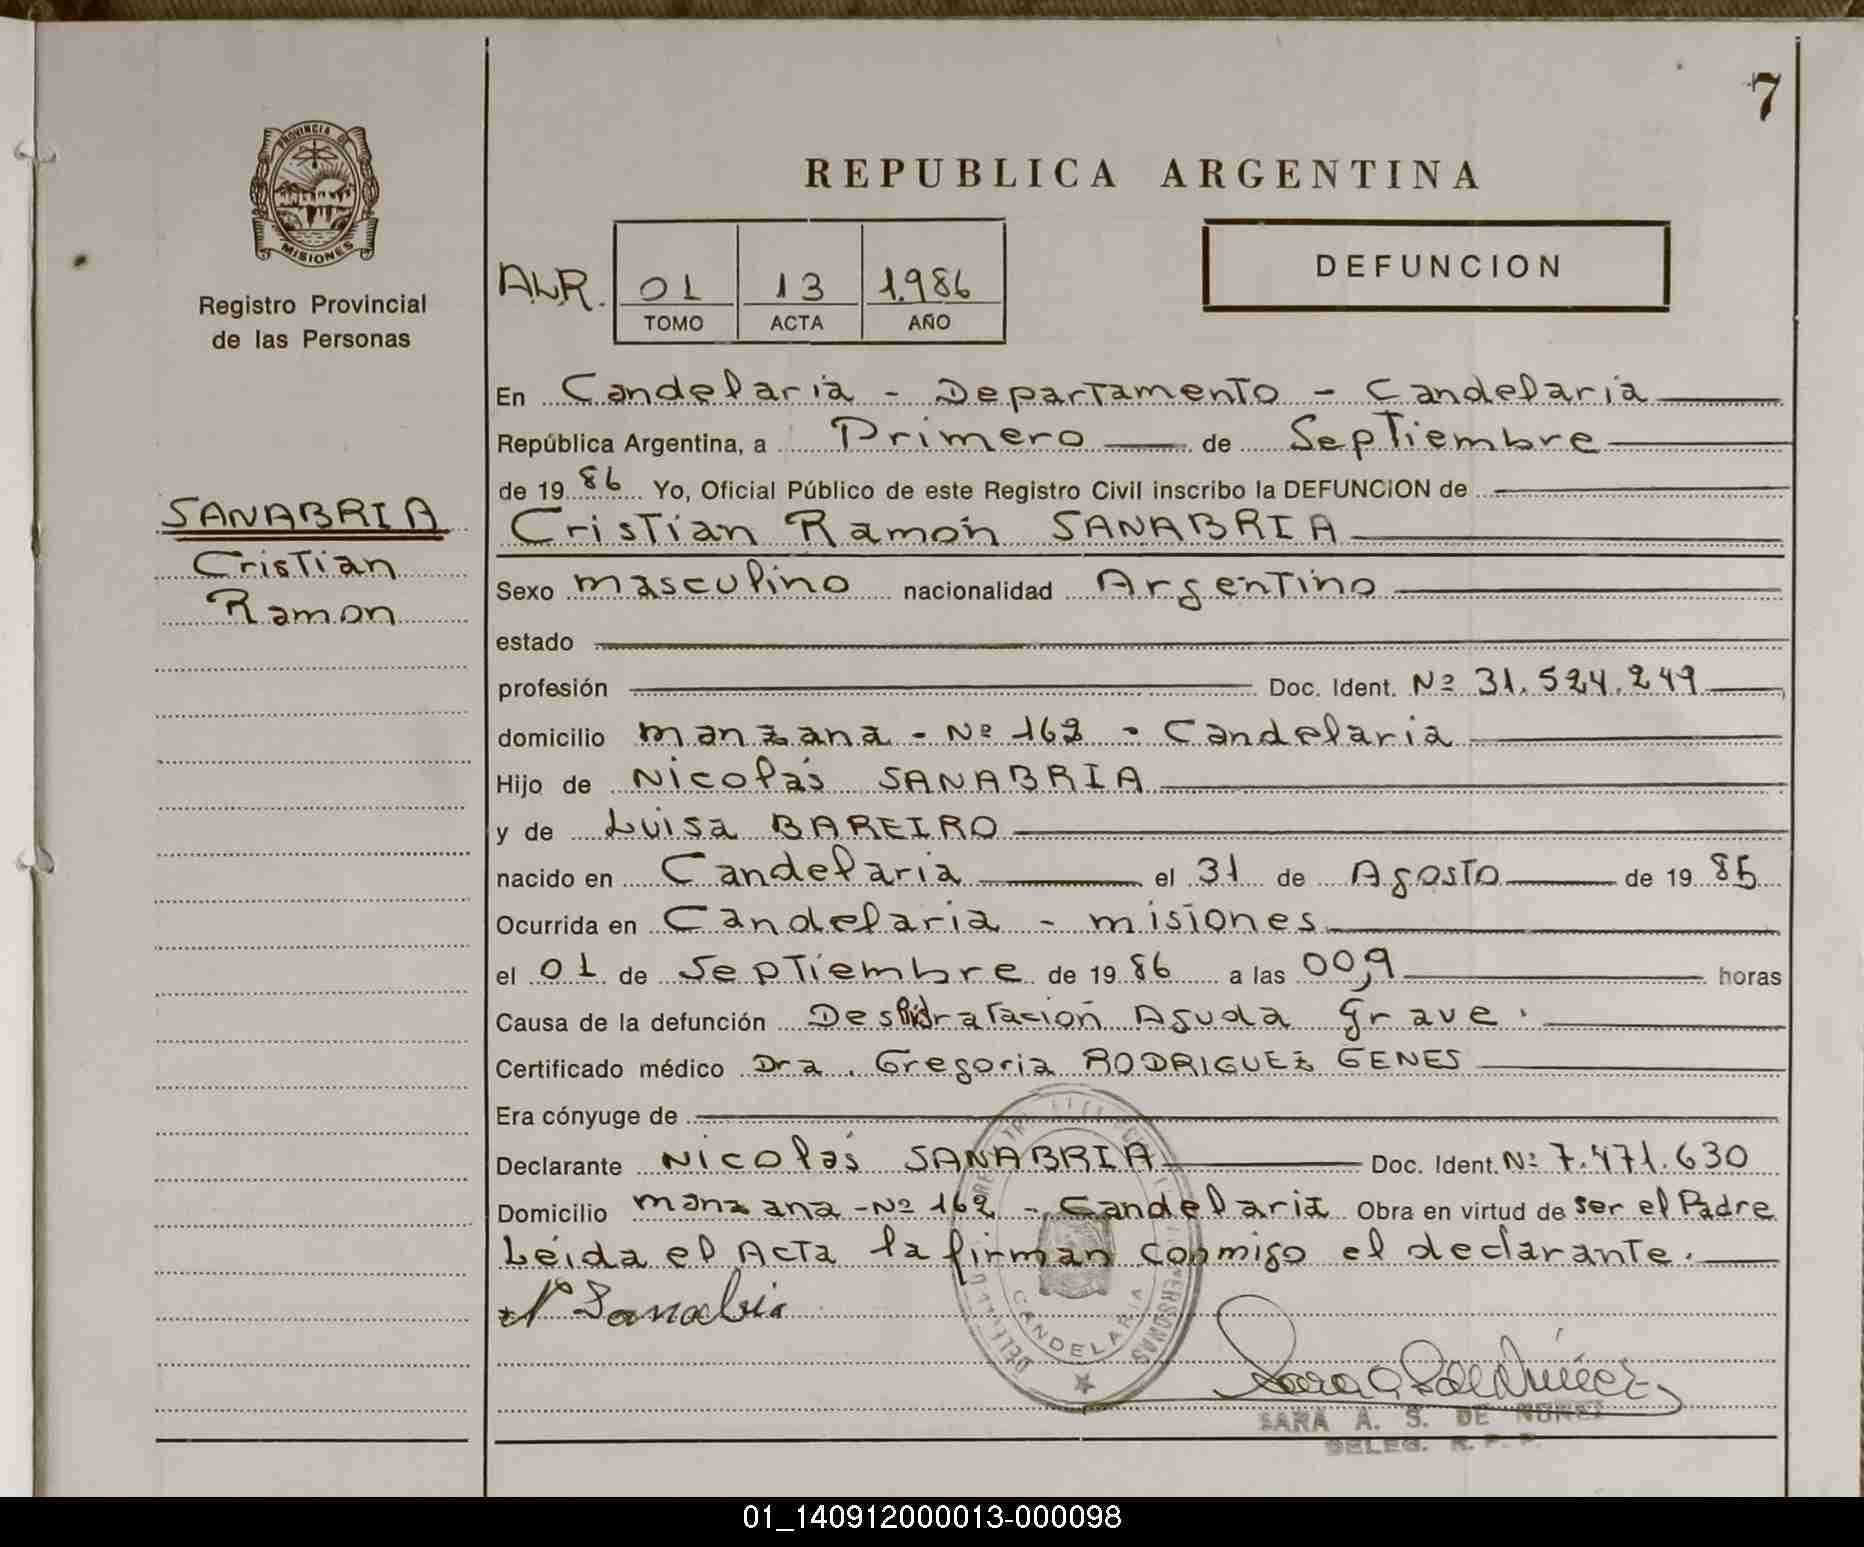 7
PROVINCIA DE
MISIONES
Registro Provincial
de las Personas
REPUBLICA ARGENTINA
DEFUNCION
A.L.R. 01 13 1.986
TOMO ACTA AÑO
SANABRIA
Cristian
Ramon
En Candelaria - Departamento - Candelaria
República Argentina, a Primero de Septiembre
de 19 86 Yo, Oficial Público de este Registro Civil inscribo la DEFUNCION de
Cristian Ramón SANABRIA
Sexo masculino nacionalidad Argentino
estado
profesión Doc. Ident. Nº 31.524.249
domicilio manzana - Nº 162 - Candelaria
Hijo de Nicolás SANABRIA
y de Luisa BAREIRO
nacido en Candelaria el 31 de Agosto de 19 85
Ocurrida en Candelaria - misiones
el 01 de Septiembre de 19 86 a las 00,9 horas
Causa de la defunción Deshidratación Aguda grave.
Certificado médico Dra. Gregoria RODRIGUEZ GENES
Era cónyuge de
Declarante Nicolás SANABRIA Doc. Ident. Nº 7.471.630
Domicilio manzana - Nº 162 - Candelaria Obra en virtud de ser el Padre
Leida el Acta la firman conmigo el declarante.
N Sanabria
CANDELARIA
SARA A. S. DE NUÑEZ
DELEG. R. P. P.
01_140912000013-000098